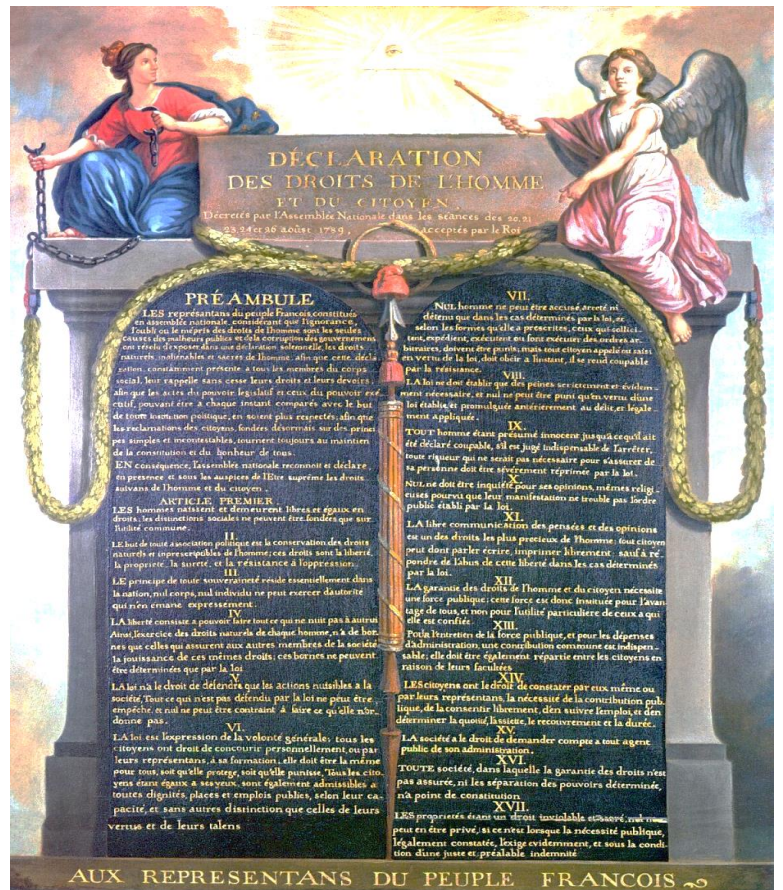 DÉCLARATION
DES DROITS DE L'HOMME
ET DU CITOYEN,
Décretés par l'Assemblée Nationale dans les séances des 20, 21
23, 24 et 26 août 1789, acceptés par le Roi
PRÉAMBULE
LES représantans du peuple François, constitués
en assemblée nationale, considérant que l'ignorance,
l'oubli ou le mépris des droits de l'homme sont les seules
causes des malheurs publics et de la corruption des gouvernemens
ont résolu d'exposer dans une déclaration solemnelle, les droits
naturels, inaliénables et sacrés de l'homme; afin que cette décla
ration, constamment présente a tous les membres du corps
social, leur rappelle sans cesse leurs droits et leurs devoirs
afin que les actes du pouvoir législatif et ceux du pouvoir exé
cutif, pouvant être a chaque instant comparés avec le but
de toute institution politique, en soient plus respectés; afin que
les réclamations des citoyens, fondées désormais sur des prin
pes simples et incontestables, tournent toujours au maintien
de la constitution et du bonheur de tous.
EN conséquence, l'assemblée nationale reconnoit et déclare
en presence et sous les auspices de l'Etre suprême les droits
suivans de l'homme et du citoyen.
ARTICLE PREMIER.
LES hommes naissent et demeurent libres et égaux en
droits; les distinctions sociales ne peuvent être fondées que sur
l'utilité commune.
II.
LE but de toute association politique est la conservation des droits
naturels et inprescriptibles de l'homme; ces droits sont la liberté,
la propriété, la sureté, et la résistance à l'oppression.
III.
LE principe de toute souveraineté réside essentiellement dans
la nation, nul corps, nul individu ne peut exercer d'autorité
qui n'en émane expressement.
IV.
LA liberté consiste a pouvoir faire tout ce qui ne nuit pas à autrui
Ainsi, l'exercice des droits naturels de chaque homme, n'a de bor-
nes que celles qui assurent aux autres membres de la société
la jouissance de ces mêmes droits; ces bornes ne peuvent
être déterminées que par la loi
V.
LA loi n'a le droit de défendre que les actions nuisibles a la
société. Tout ce qui n'est pas défendu par la loi ne peut être
empêché, et nul ne peut être contraint à faire ce qu'elle n'or-
donne pas.
VI.
LA loi est l'expression de la volonté générale; tous les
citoyens ont droit de concourir personnellement, ou par
leurs représentans, à sa formation; elle doit être la même
pour tous, soit qu'elle protege, soit qu'elle punisse. Tous les cito
yens étant égaux a ses yeux, sont également admissibles a
toutes dignités, places et emplois publics, selon leur ca-
pacité, et sans autres distinction que celles de leurs
vertus et de leurs talens
VII.
NUL homme ne peut être accusé, arreté ni
détenu que dans les cas déterminés par la loi, et
selon les formes qu'elle a prescrites, ceux qui sollici-
tent, expédient, exécutent ou font exécuter des ordres ar-
bitraires, doivent être punis; mais tout citoyen appelé ou saisi
en vertu de la loi, doit obéir a l'instant, il se rend coupable
par la résistance.
VIII.
LA loi ne doit établir que des peines strictement et évidem-
ment nécessaire, et nul ne peut être puni qu'en vertu d'une
loi établie et promulguée antérierement au délit, et légale-
ment appliquée.
IX.
TOUT homme étant présumé innocent jusqu'a ce qu'il ait
été déclaré coupable, s'il est jugé indispensable de l'arrêter,
toute rigueur qui ne serait pas nécessaire pour s'assurer de
sa personne doit être sévérement réprimée par la loi.
X.
NUL ne doit être inquiété pour ses opinions, mêmes religi-
euses pourvu que leur manifestation ne trouble pas l'ordre
public établi par la loi.
XI.
LA libre communication des pensées et des opinions
est un des droits les plus precieux de l'homme: tout citoyen
peut dont parler écrire, imprimer librement: sauf à ré-
pondre de l'abus de cette liberté dans les cas déterminés
par la loi.
XII.
LA garantie des droits de l'homme et du citoyen nécessite
une force publique; cette force est donc instituée pour l'avan
tage de tous, et non pour l'utilité particuliere de ceux a qui
elle est confiée.
XIII.
POUR l'entretien de la force publique, et pour les dépenses
d'administration, une contribution commune est indispen-
sable; elle doit être également répartie entre les citoyens en
raison de leurs facultées
XIV.
LES citoyens ont le droit de constater par eux même ou
par leurs représentans, la nécessité de la contribution pub-
lique, de la consentir librement, d'en suivre l'emploi, et d'en
déterminer la quotité, l'assiette, le recouvrement et la durée.
XV.
LA société a le droit de demander compte a tout agent
public de son administration.
XVI.
TOUTE société, dans laquelle la garantie des droits n'est
pas assurée, ni les séparation des pouvoirs déterminée,
n'a point de constitution
XVII.
LES propriétés étant un droit inviolable et sacré, nul ne
peut en être privé, si ce n'est lorsque la nécessité publique,
légalement constatée, l'exige évidemment, et sous la condi-
tion d'une juste et préalable indemnité
AUX REPRESENTANS DU PEUPLE FRANCOIS